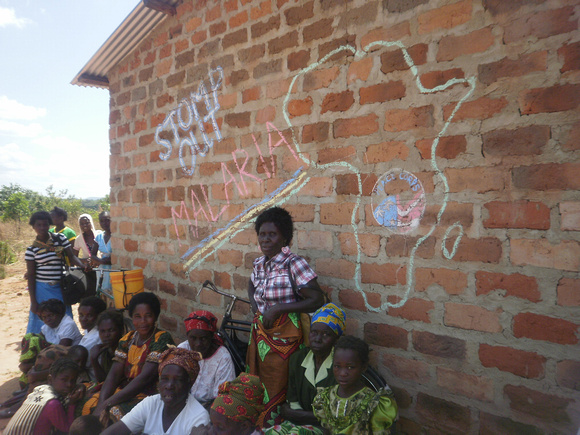 STOMP
OUT
MALARIA